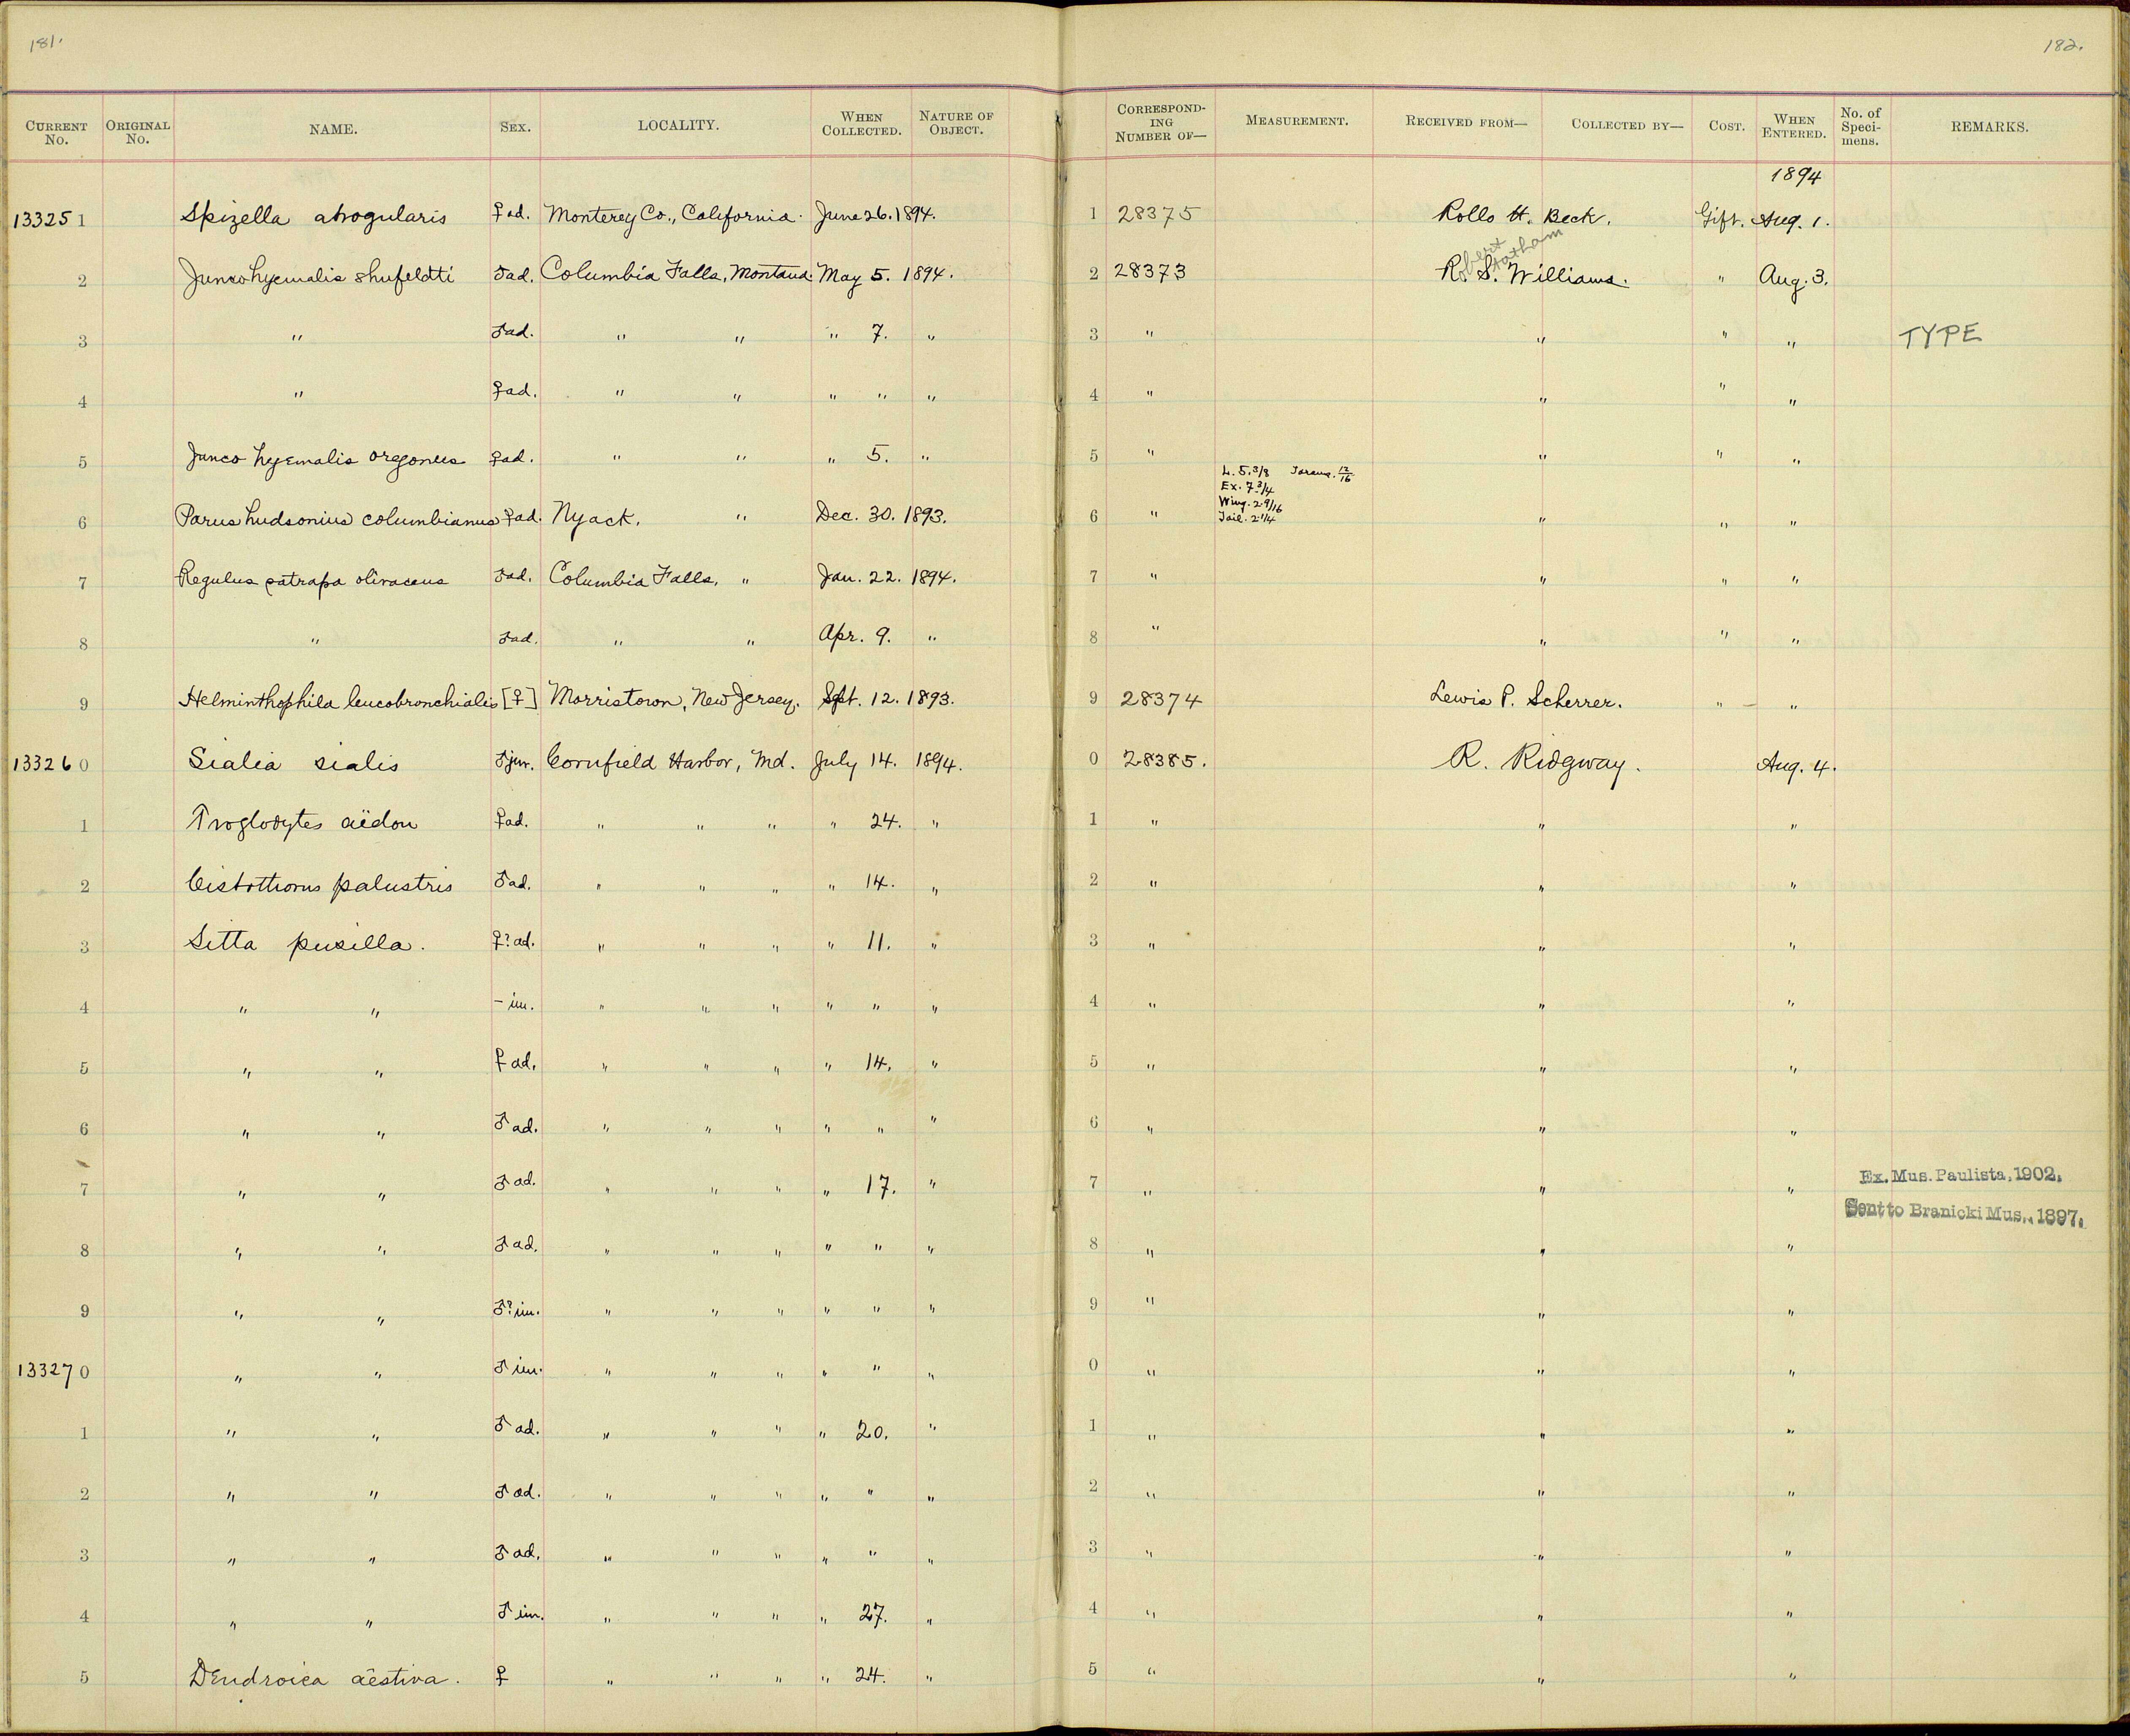 181. 182.
CURRENT No. ORIGINAL No. NAME. SEX. LOCALITY. WHEN COLLECTED. NATURE OF OBJECT. CORRESPONDING NUMBER OF— MEASUREMENT. RECEIVED FROM— COLLECTED BY— COST. WHEN ENTERED. No. of Specimens. REMARKS.
1894
133251 Spizella atrogularis ♀ ad. Monterey Co., California. June 26. 1894. 1 28375 Rollo H. Beck. Gift. Aug. 1.
Robert Statham
2 Junco hyemalis shufeldti ♂ ad. Columbia Falls, Montana. May 5. 1894. 2 28373 R. S. Williams. " Aug. 3.
3 " ♂ ad. " " " 7. " 3 " " " " TYPE
4 " ♀ ad. " " " " " 4 " " " "
5 Junco hyemalis oregonus ♀ ad. " " " 5. " 5 " " " "
L. 5.3/8 Tarsus. 12/16
Ex. 7 3/4
Wing. 2.9/16
Tail. 2 1/4
6 Parus hudsonius columbianus ♀ ad. Nyack, " Dec. 30. 1893. 6 " " " "
7 Regulus satrapa olivaceus ♂ ad. Columbia Falls, " Jan. 22. 1894. 7 " " " "
8 " ♂ ad. " " Apr. 9. " 8 " " " "
9 Helminthophila leucobronchialis [♀] Morristown, New Jersey. Sept. 12. 1893. 9 28374 Lewis P. Scherrer. " "
133260 Sialia sialis ♂ juv. Cornfield Harbor, Md. July 14. 1894. 0 28385. R. Ridgway. Aug. 4.
1 Troglodytes aëdon ♀ ad. " " " " 24. " 1 " " "
2 Cistothorus palustris ♂ ad. " " " " 14. " 2 " " "
3 Sitta pusilla. ♀? ad. " " " " 11. " 3 " " "
4 " " – im. " " " " " " 4 " " "
5 " " ♀ ad. " " " " 14. " 5 " " "
6 " " ♂ ad. " " " " " " 6 " " "
7 " " ♂ ad. " " " " 17. " 7 " " " Ex. Mus. Paulista, 1902.
Sent to Branicki Mus., 1897.
8 " " ♂ ad. " " " " " " 8 " " "
9 " " ♂? im. " " " " " " 9 " " "
133270 " " ♂ im. " " " " " " 0 " " "
1 " " ♂ ad. " " " " 20. " 1 " " "
2 " " ♂ ad. " " " " " " 2 " " "
3 " " ♂ ad. " " " " " " 3 " " "
4 " " ♂ im. " " " " 27. " 4 " " "
5 Dendroica aestiva. ♀ " " " " 24. " 5 " " "